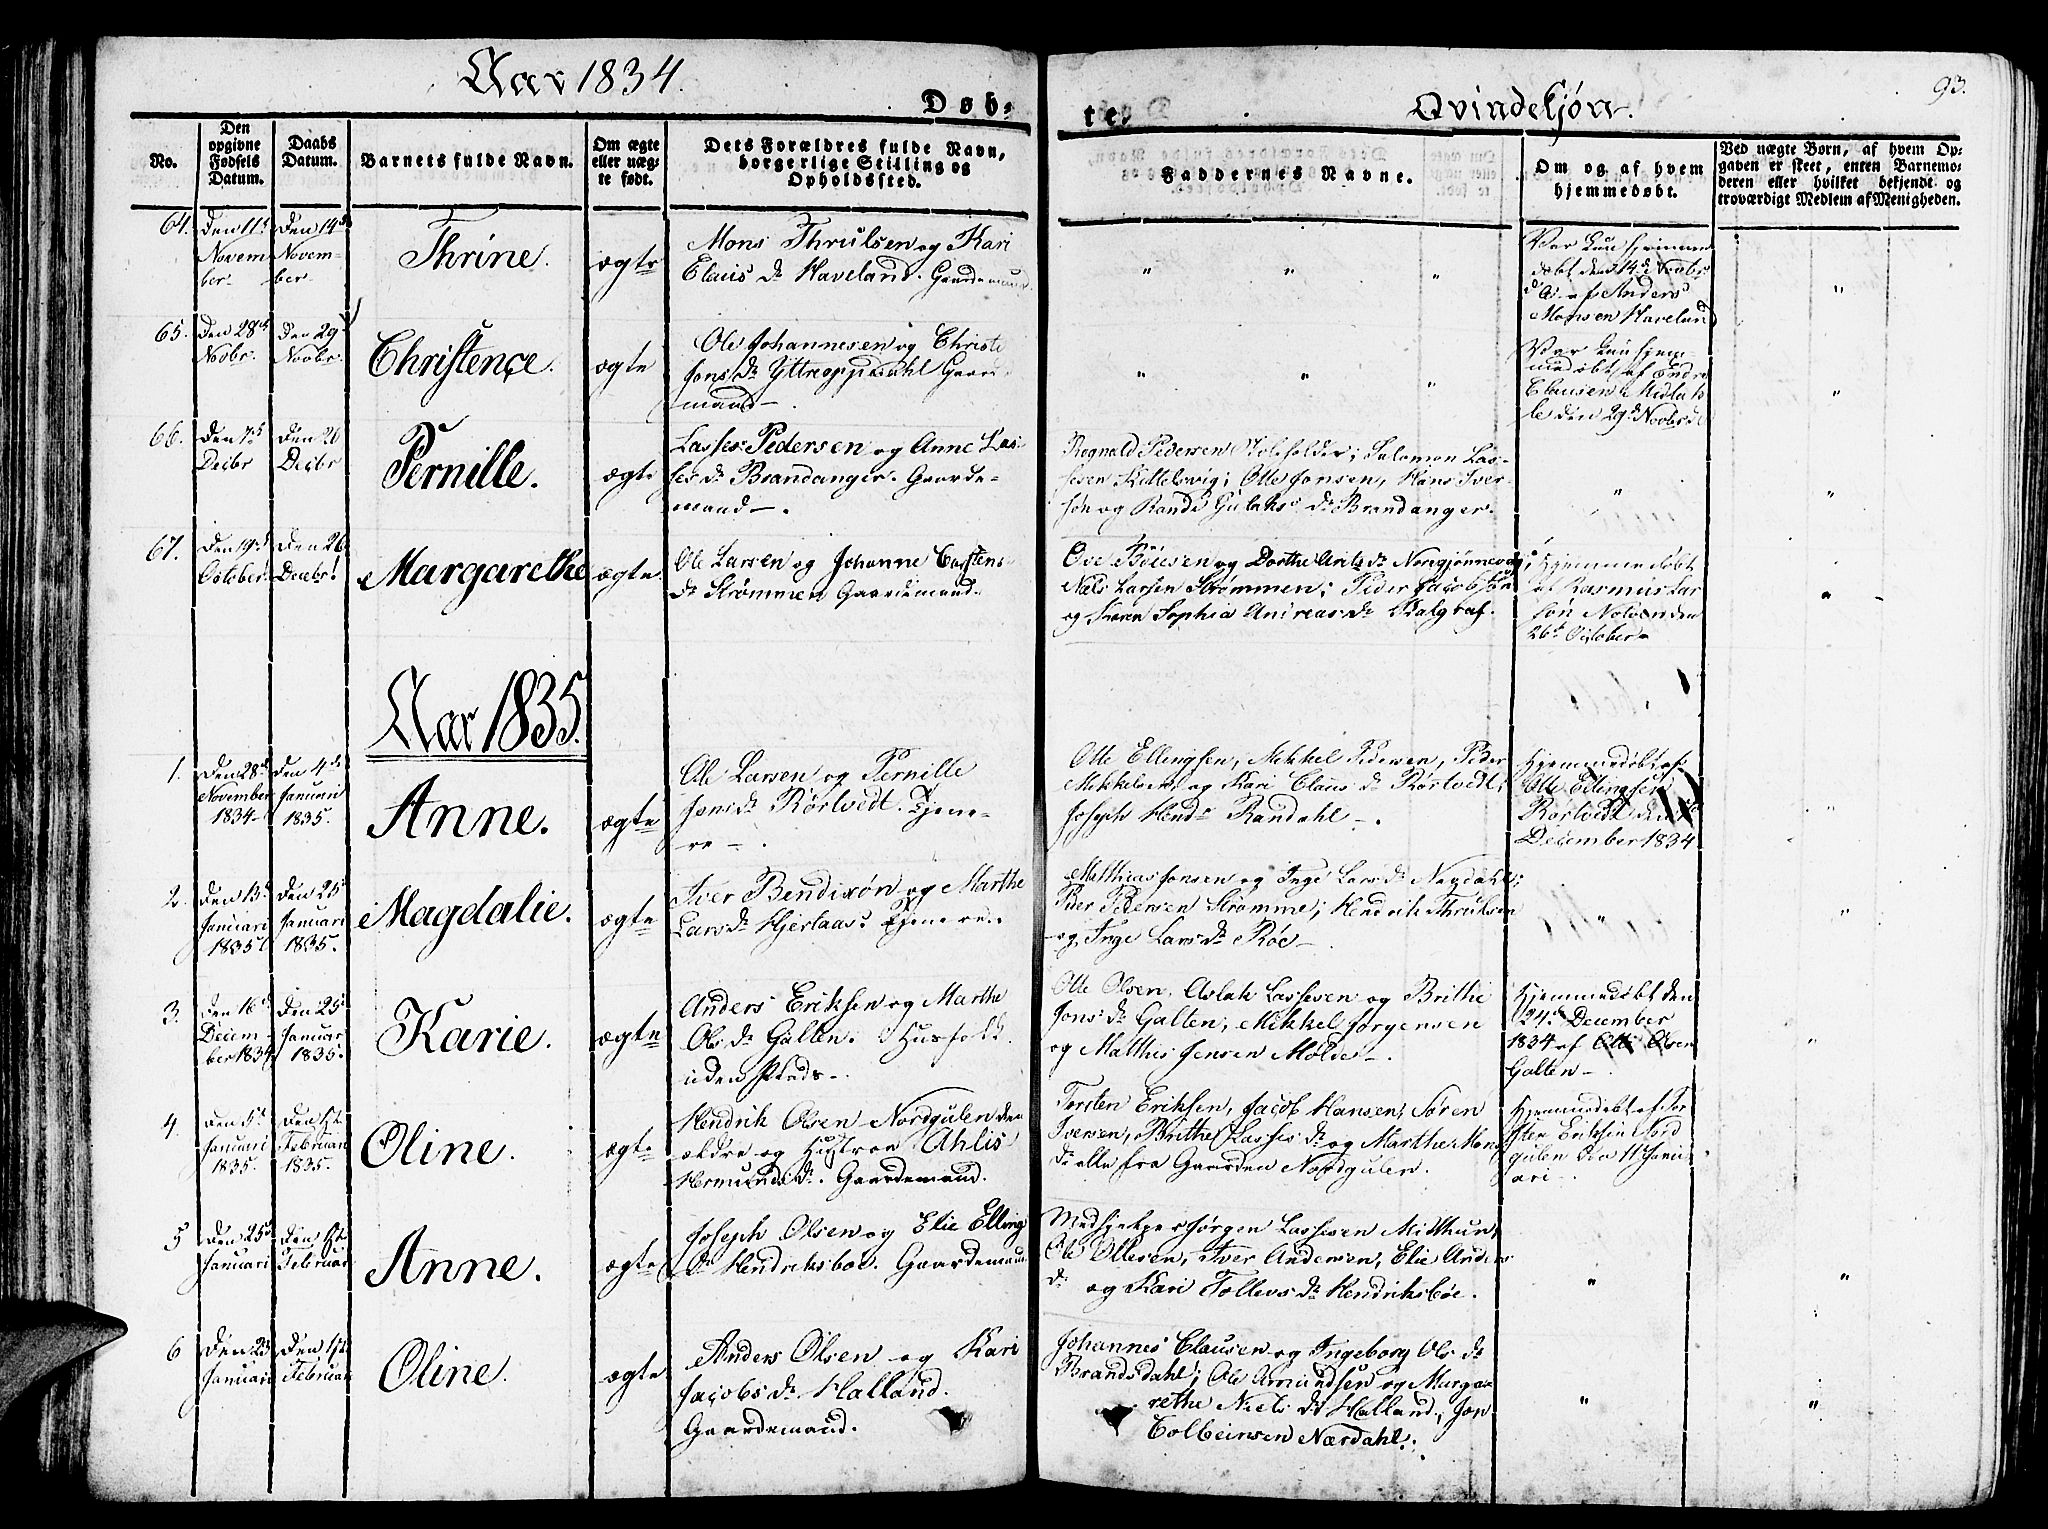 Aar 1834.
Døb-
te.
Qvindekjøn.
93.
No.
Den opgivne Fødsels Datum.
Daabs Datum.
Barnets fulde Navn.
Om ægte eller uægte født.
Dets Forældres fulde Navn, borgerlige Stilling og Opholdssted.
Faddernes Navne.
Om og af hvem hjemmedøbt.
Ved uægte Børn, af hvem Opgaven er skeet, enten Barnemoderen eller hvilket bekjendt og troværdigt Medlem af Menigheden.
64.
Den 11te
Novem
ber
Den 14de
Novem-
ber
Thrine.
ægte
Mons Thrulsen og Kari
Claus Dr Haveland. Gaardemand.
" " "
Var kun hjemme
døbt den 14de Novbr
af Anders
Monsen Haveland
"
65.
Den 28de
Novbr.
Den 29
Novbr.
Christence.
ægte
Ole Johannesen og Christi
Jons Dr Yttreoppedahl Gaard
mand.
" " "
Var kun hjem-
medøbt af Endre
Clausen Midtah
le den 29de Novbr
"
66.
Den 7de
Decbr
Den 26
Decbr
Pernille.
ægte
Lasse Pedersen og Anne Las-
ses Dr Brandanger. Gaarde-
mand.
Rognald Pedersen Skoleholder; Salomon Las-
sesen Kittelsvig; Otte Jonsen, Hans Iver-
søn og Randi Gulaks Dr Brandanger.
"
"
67.
Den 19de
October.
Den 26
Decbr!
Margarethe
ægte.
Ole Larsen og Johanne Carstens
Dr Strømmen Gaardemand.
Ove Bøiesen og Dorthe Ants Dr Norigjønnevog;
Niels Larsen Strømmen; Peder Jacobsøn
og Karen Sophia Andreas Dr Kalgraf.
Hjemmedøbt
af Rasmus Lar
søn Nolven den
26de October
"
Aar 1835.
1.
Den 28de
November
1834
Den 4de
Januari
1835.
Anne.
ægte
Ole Larsen og Pernille
Jons Dr Rørtvedt. Tjene-
re.
Otte Ellingsen, Mikkel Pedersen, Peder
Mikkelsen, og Kari Claus Dr Rørtvedt;
Joseph Hend Randahl.
Hjemmedøbt af
Otte Ellingsen
Rørtvedt den
December 1834
"
2.
Den 13de
Januari
1835.
Den 25de
Januari
1835.
Magdalie.
ægte
Iver Bendixøn og Marthe
Lars Dr Hjertaas. Tjenere.
Matthias Jonsen og Inge Lars Dr Nagdahl;
Peder Pedersen Strømme; Hendrik Thrulsen
og Inge Lars Dr Røe.
"
"
3.
Den 16de
Decem-
ber 1834
Den 25de
Januar
1835.
Karie.
ægte
Anders Eriksen og Marthe
Ols Dr Galten. Husfolk
uden Plads.
Otte Olsen, Aslak Lassesen og Brithe
Jons Dr Galten; Mikkel Jørgensen
og Matthis Jensen Mølde.
Hjemmedøbt den
24de December
1834 af Otte Olsen
Galten.
"
4.
Den 5te
Januari
1835.
Den 1ste
Februari
1835.
Oline.
ægte
Hendrik Olsen Nordgulen den
ældre og Hustroe Ahlis
Hermunds Dr. Gaardemand.
Torsten Eriksen, Jacob Hansen, Søren
Iversen, Brithe Lasses Dr og Marthe Mons
Dr alle fra Gaarden Nordgulen.
Hjemmedøbt af Tor
sten Eriksen Nord
gulen den 11te Janu
ari.
5
Den 25de
Januari
Den 1ste
Februar
Anne.
ægte
Joseph Olsen og Elie Elling
Dr Hendriksboe. Gaardemand
Medhjelper Jørgen Lassesen Midthun,
Ole Ottesen, Iver Andersen, Elie Anders
Dr og Kari Tollevs Dr Hendriksbøe.
"
"
6
Den 25
Januari
Den 1ste
Februar
Oline.
ægte
Anders Olsen og Kari
Jacobs Dr Halland.
Gaardemand.
Johannes Clausen og Ingeborg Ols Dr
Brandsdahl; Ole Amundsen og Marga-
rethe Niels Dr Halland, Jon
Colbeinsen Nærdahl.
"
"